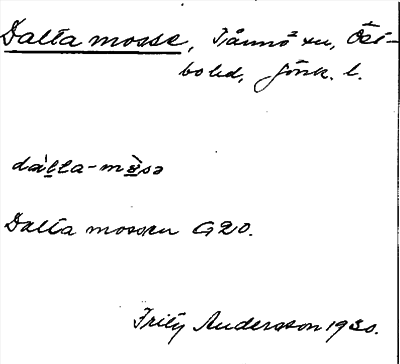 Dalta mosse, Tånnö sn, Öst-
bo hd, Jönk. l.
dàlta-mòsə
Dalta mossen G20.
Fritz Andersson 1930.